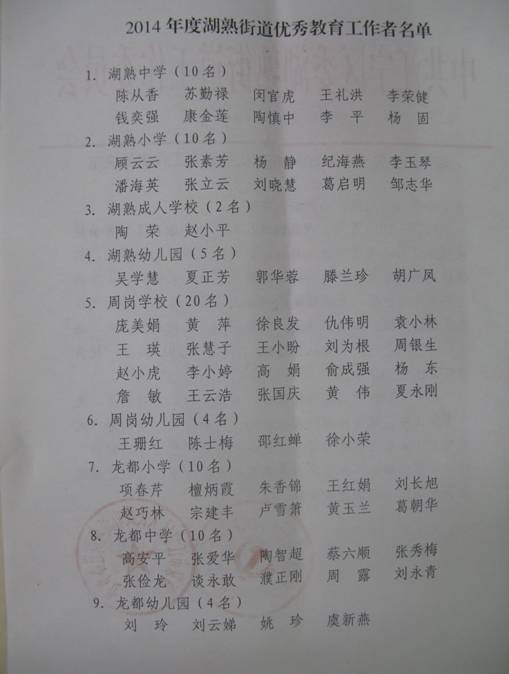 2014 年度湖熟街道优秀教育工作者名单
1. 湖熟中学(10 名)
陈从香 苏勤禄 闵官虎 王礼洪 李荣健
钱奕强 康金莲 陶慎中 李 平 杨 固
2. 湖熟小学(10 名)
顾云云 张素芳 杨 静 纪海燕 李玉琴
潘海英 张立云 刘晓慧 葛启明 邹志华
3. 湖熟成人学校(2 名)
陶 荣 赵小平
4. 湖熟幼儿园(5 名)
吴学慧 夏正芳 郭华蓉 滕兰珍 胡广凤
5. 周岗学校(20 名)
庞美娟 黄 萍 徐良发 仇伟明 袁小林
王 瑛 张慧子 王小盼 刘为根 周银生
赵小虎 李小婷 高 娟 俞成强 杨 东
詹 敏 王云浩 张国庆 黄 伟 夏永刚
6. 周岗幼儿园(4 名)
王珊红 陈士梅 邵红蝉 徐小荣
7. 龙都小学(10 名)
项春芹 檀炳霞 朱香锦 王红娟 刘长旭
赵巧林 宗建丰 卢雪箫 黄玉兰 葛朝华
8. 龙都中学(10 名)
高安平 张爱华 陶智超 蔡六顺 张秀梅
张俭龙 谈永敢 濮正刚 周 露 刘永青
9. 龙都幼儿园(4 名)
刘 玲 刘云娣 姚 珍 虞新燕